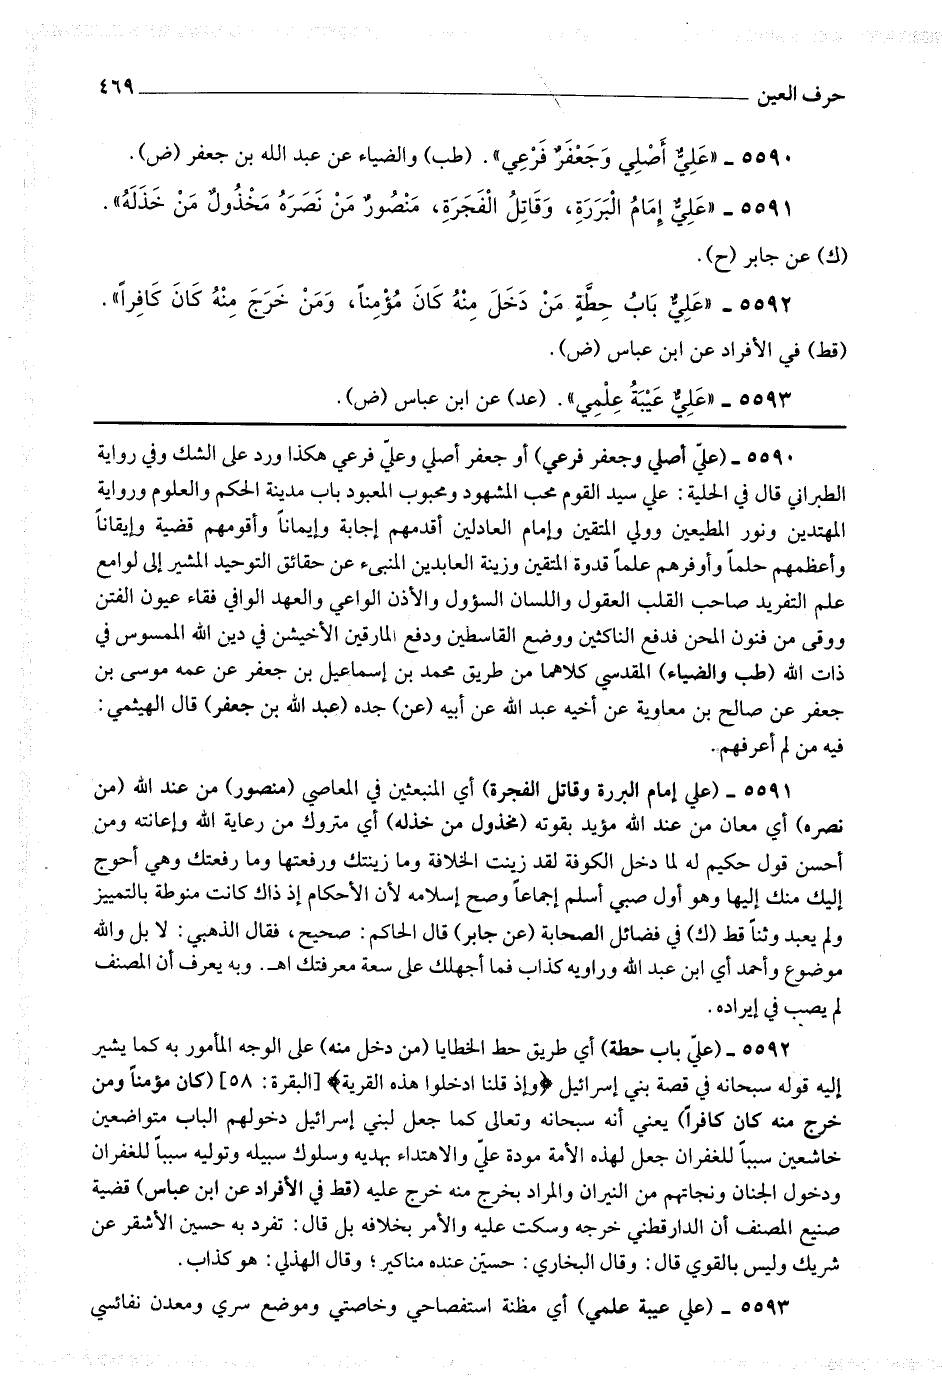 حرف العين ٤٦٩
٥٥٩٠ ـ «عَلِيٌّ أَصْلِي وَجَعْفَرٌ فَرْعِي». (طب) والضياء عن عبد الله بن جعفر (ض).
٥٥٩١ ـ «عَلِيٌّ إِمَامُ الْبَرَرَةِ، وَقَاتِلُ الْفَجَرَةِ، مَنْصُورٌ مَنْ نَصَرَهُ مَخْذُولٌ مَنْ خَذَلَهُ».
(ك) عن جابر (ح).
٥٥٩٢ ـ «عَلِيٌّ بَابُ حِطَّةٍ مَنْ دَخَلَ مِنْهُ كَانَ مُؤْمِناً، وَمَنْ خَرَجَ مِنْهُ كَانَ كَافِراً».
(قط) في الأفراد عن ابن عباس (ض).
٥٥٩٣ ـ «عَلِيٌّ عَيْبَةُ عِلْمِي». (عد) عن ابن عباس (ض).
٥٥٩٠ ـ (عليّ أصلي وجعفر فرعي) أو جعفر أصلي وعليّ فرعي هكذا ورد على الشك وفي رواية
الطبراني قال في الحلية: علي سيد القوم محب المشهود ومحبوب المعبود باب مدينة الحكم والعلوم ورواية
المهتدين ونور المطيعين وولي المتقين وإمام العادلين أقدمهم إجابة وإيماناً وأقومهم قضية وإيقاناً
وأعظمهم حلماً وأوفرهم علماً قدوة المتقين وزينة العابدين المنبىء عن حقائق التوحيد المشير إلى لوامع
علم التفريد صاحب القلب العقول واللسان السؤول والأذن الواعي والعهد الوافي فقاء عيون الفتن
ووقى من فنون المحن فدفع الناكثين ووضع القاسطين ودفع المارقين الأخيشن في دين الله الممسوس في
ذات الله (طب والضياء) المقدسي كلاهما من طريق محمد بن إسماعيل بن جعفر عن عمه موسى بن
جعفر عن صالح بن معاوية عن أخيه عبد الله عن أبيه (عن) جده (عبد الله بن جعفر) قال الهيثمي:
فيه من لم أعرفهم.
٥٥٩١ ـ (علي إمام البررة وقاتل الفجرة) أي المنبعثين في المعاصي (منصور) من عند الله (من
نصره) أي معان من عند الله مؤيد بقوته (مخذول من خذله) أي متروك من رعاية الله وإعانته ومن
أحسن قول حكيم له لما دخل الكوفة لقد زينت الخلافة وما زينتك ورفعتها وما رفعتك وهي أحوج
إليك منك إليها وهو أول صبي أسلم إجماعاً وصح إسلامه لأن الأحكام إذ ذاك كانت منوطة بالتمييز
ولم يعبد وثناً قط (ك) في فضائل الصحابة (عن جابر) قال الحاكم: صحيح، فقال الذهبي: لا بل والله
موضوع وأحمد أي ابن عبد الله وراويه كذاب فما أجهلك على سعة معرفتك اهـ. وبه يعرف أن المصنف
لم يصب في إيراده.
٥٥٩٢ ـ (عليّ باب حطة) أي طريق حط الخطايا (من دخل منه) على الوجه المأمور به كما يشير
إليه قوله سبحانه في قصة بني إسرائيل ﴿وإذ قلنا ادخلوا هذه القرية﴾ [البقرة: ٥٨] (كان مؤمناً ومن
خرج منه كان كافراً) يعني أنه سبحانه وتعالى كما جعل لبني إسرائيل دخولهم الباب متواضعين
خاشعين سبباً للغفران جعل لهذه الأمة مودة عليّ والاهتداء بهديه وسلوك سبيله وتوليه سبباً للغفران
ودخول الجنان ونجاتهم من النيران والمراد بخرج منه خرج عليه (قط في الأفراد عن ابن عباس) قضية
صنيع المصنف أن الدارقطني خرجه وسكت عليه والأمر بخلافه بل قال: تفرد به حسين الأشقر عن
شريك وليس بالقوي قال: وقال البخاري: حسيّن عنده مناكير؛ وقال الهذلي: هو كذاب.
٥٥٩٣ ـ (علي عيبة علمي) أي مظنة استفصاحي وخاصتي وموضع سري ومعدن نفائسي